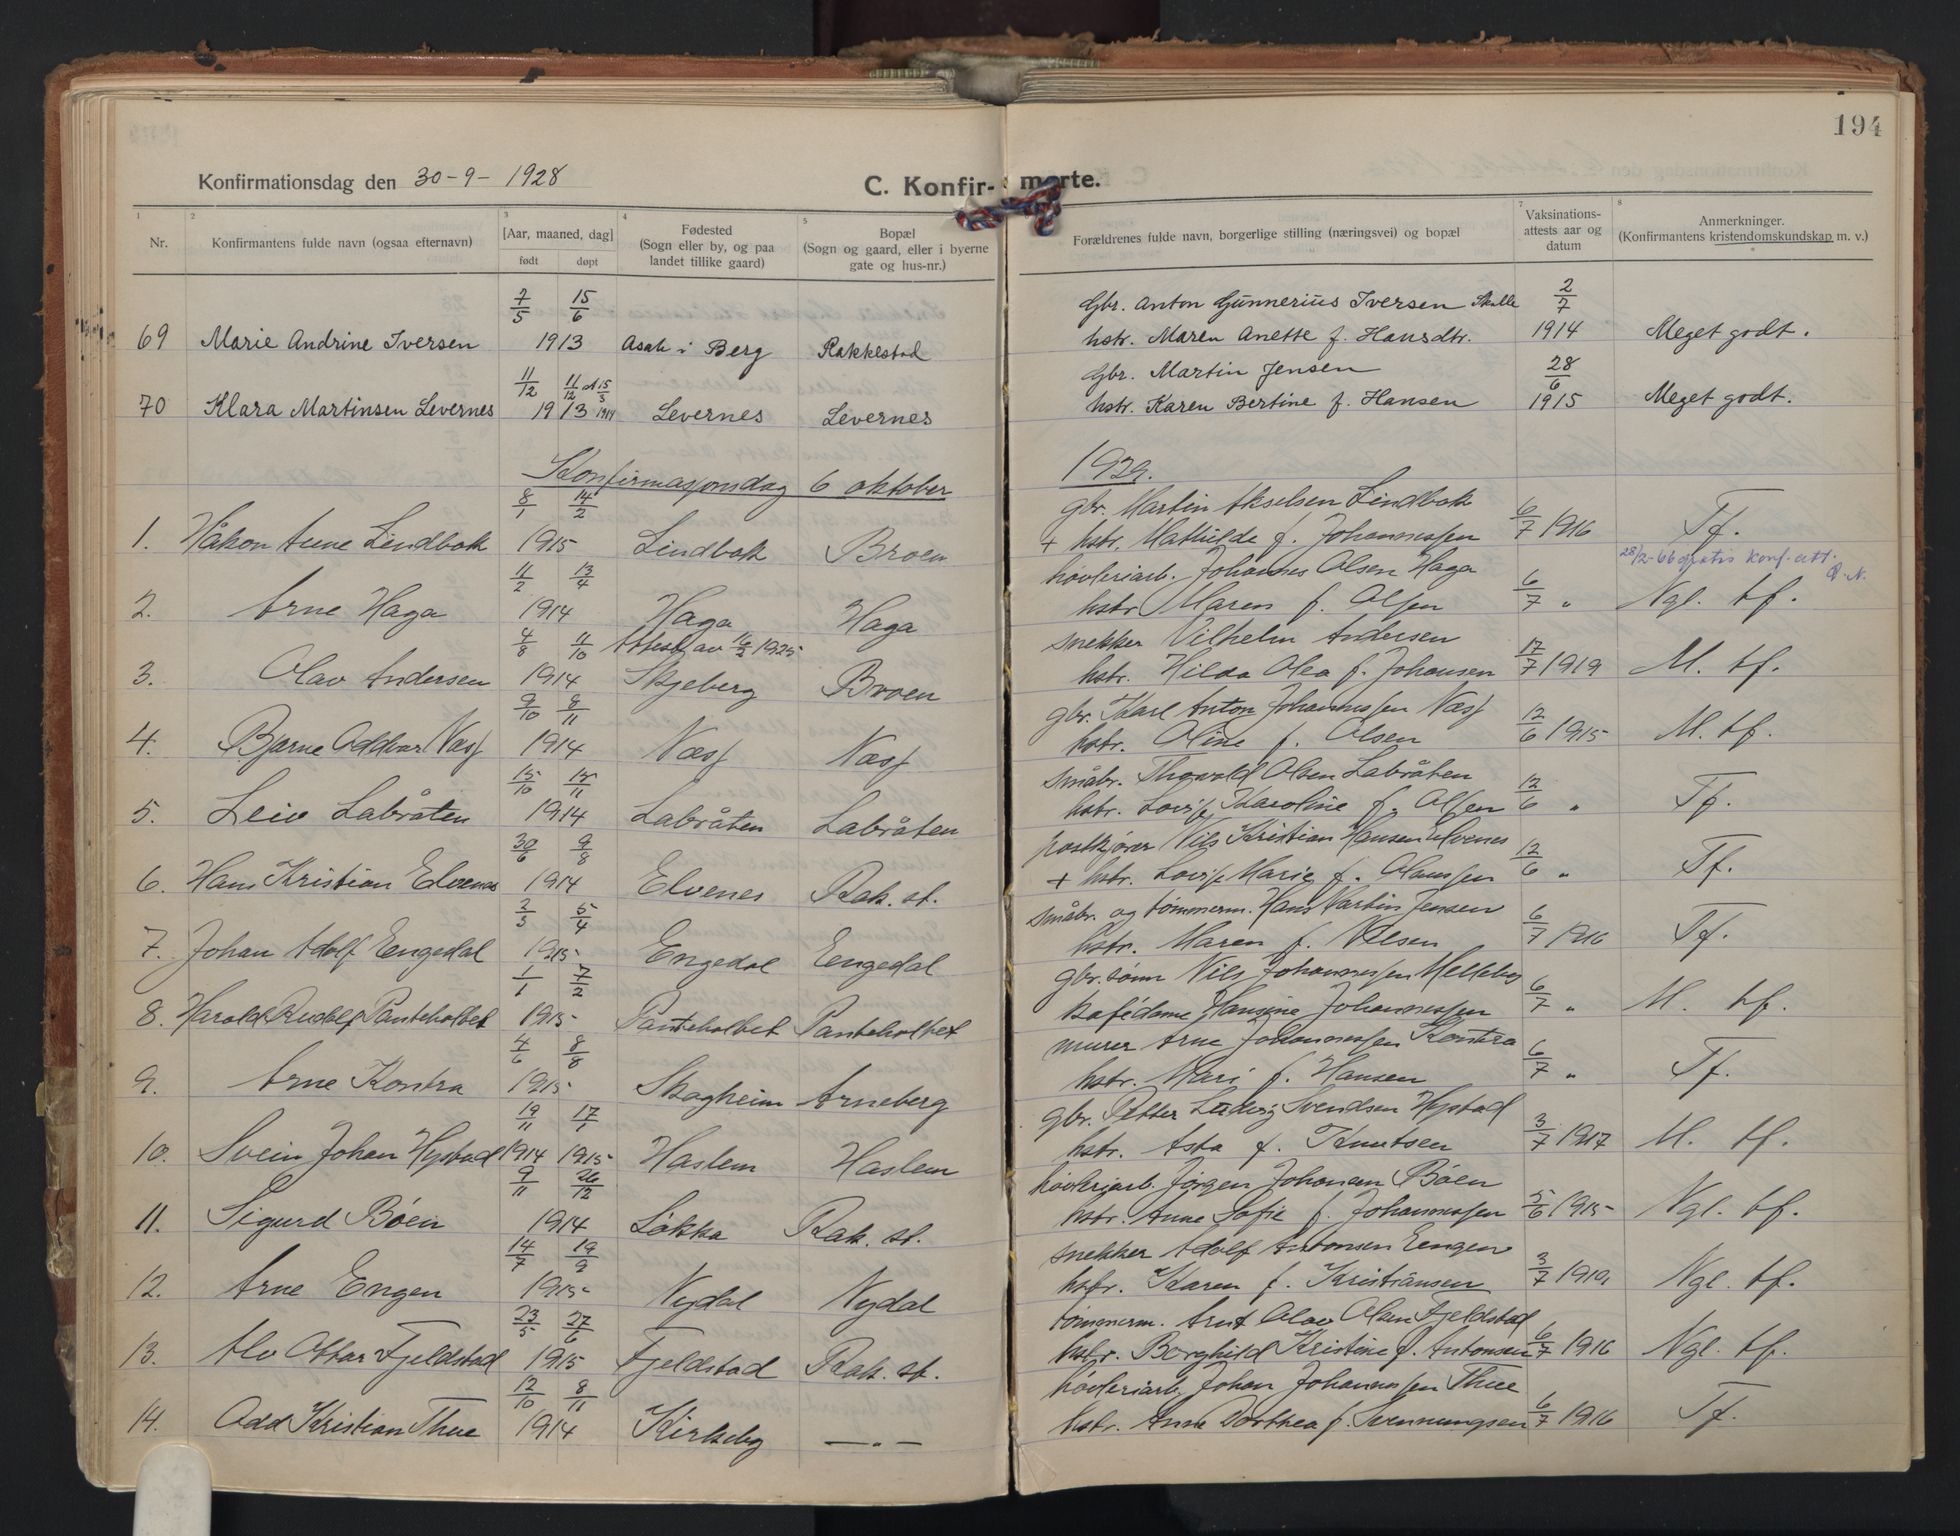 194
Konfirmationsdag den 30-9-1928
C. Konfir- merte.
1 2 3 4 5 7 8
Nr.
Konfirmantens fulde navn (ogsaa efternavn)
[Aar, maaned, dag]
født døpt
Fødested
(Sogn eller by, og paa
landet tillike gaard)
Bopæl
(Sogn og gaard, eller i byerne
gate og hus-nr.)
Forældrenes fulde navn, borgerlige stilling (næringsvei) og bopæl
Vaksinations-
attests aar og
datum
Anmerkninger.
(Konfirmantens kristendomskundskap m. v.)
7/5 15/6 Gbr. Anton Gunnerius Iversen Skulle 2/7
69 Marie Andrine Iversen 1913 Asak i Berg Rakkestad hstr. Maren Anette f. Hansdtr. 1914 Meget godt.
11/12 11/12 15/3 Gbr. Martin Jensen 28/6
70 Klara Martinsen Levernes 1913 1914 Levernes Levernes hstr. Karen Bertine f. Hansen 1915 Meget godt.
Konfirmasjonsdag 6 oktober 1929.
8/1 14/2 gbr. Martin Akselsen Lindbak
1. Håkon Arne Lindbak 1915 Lindbak Broen + hstr. Mathilde f. Johannessen 6/7 1916 Tf.
28/2-66 gratis konf. att.
11/2 13/4 høvleriarb. Johannes Olsen Haga
2. Arne Haga 1914 Haga Haga hstr. Maren f. Olsen 6/7 " Ngl. tf.
4/8 11/10 Attest av 1925 snekker Vilhelm Andersen
3. Olav Andersen 1914 Skjeberg Broen hstr. Hilda Olea f. Johansen 17/7 1919 M. tf.
9/10 8/11 gbr. Karl Anton Johannessen Næss
4. Bjarne Oddvar Næss 1914 Næss Næss hstr. Oline f. Olsen 12/6 1915 M. tf.
15/10 15/11 småbr. Thorvald Olsen Labråten
5. Leiv Labråten 1914 Labråten Labråten hstr. Lovise Karoline f. Olsen 12/6 " Tf.
30/6 9/8 postkjører Nils Kristian Hansen Elvenes
6. Hans Kristian Elvenes 1914 Elvenes Rak. st. + hstr. Lovise Marie f. Olaussen 12/6 " Tf.
2/3 5/4 småbr. og tømmerm. Hans Martin Jensen
7. Johan Adolf Eengedal 1915 Engedal Eengedal hstr. Maren f. Nilsen 6/7 1916 Tf.
1/1 7/2 gbr.sønn Nils Johannessen Melleby
8. Harald Rudolf Panteholbet 1915 Panteholbet Panteholbet kafédame Hansine Johannessen 6/7 " M. tf.
4/6 8/8 murer Arne Johannessen Kontra
9. Arne Kontra 1915 Skogheim Arneberg hstr. Mari f. Hansen 6/7 " Tf.
19/11 17/1 gbr. Petter Ludvig Svendsen Hystad
10. Svein Johan Hystad 1914 1915 Haslem Haslem hstr. Asta f. Knutsen 3/7 1917 M. tf.
9/11 26/12 høvleriarb. Jørgen Johansen Bøen
11. Sigurd Bøen 1914 Løkka Rak. st. hstr. Anne Sofie f. Johannessen 5/6 1915 Ngl. tf.
14/7 19/9 snekker Adolf Antonsen Eengen
12. Arne Engen 1915 Nydal Nydal hstr. Karen f. Kristiansen 3/7 Ngl. tf.
23/5 27/6 tømmerm. Arnt Olav Olsen Fjeldstad
13. Alv Ottar Fjeldstad 1915 Fjeldstad Rak. st. hstr. Borghild Kristine f. Antonsen 6/7 1916 Ngl. tf.
12/10 8/11 høvleriarb. Johan Johannessen Thue
14. Odd Kristian Thue 1914 Kirkeby —"— hstr. Anne Dorthea f. Svenningsen 6/7 1916 Tf.